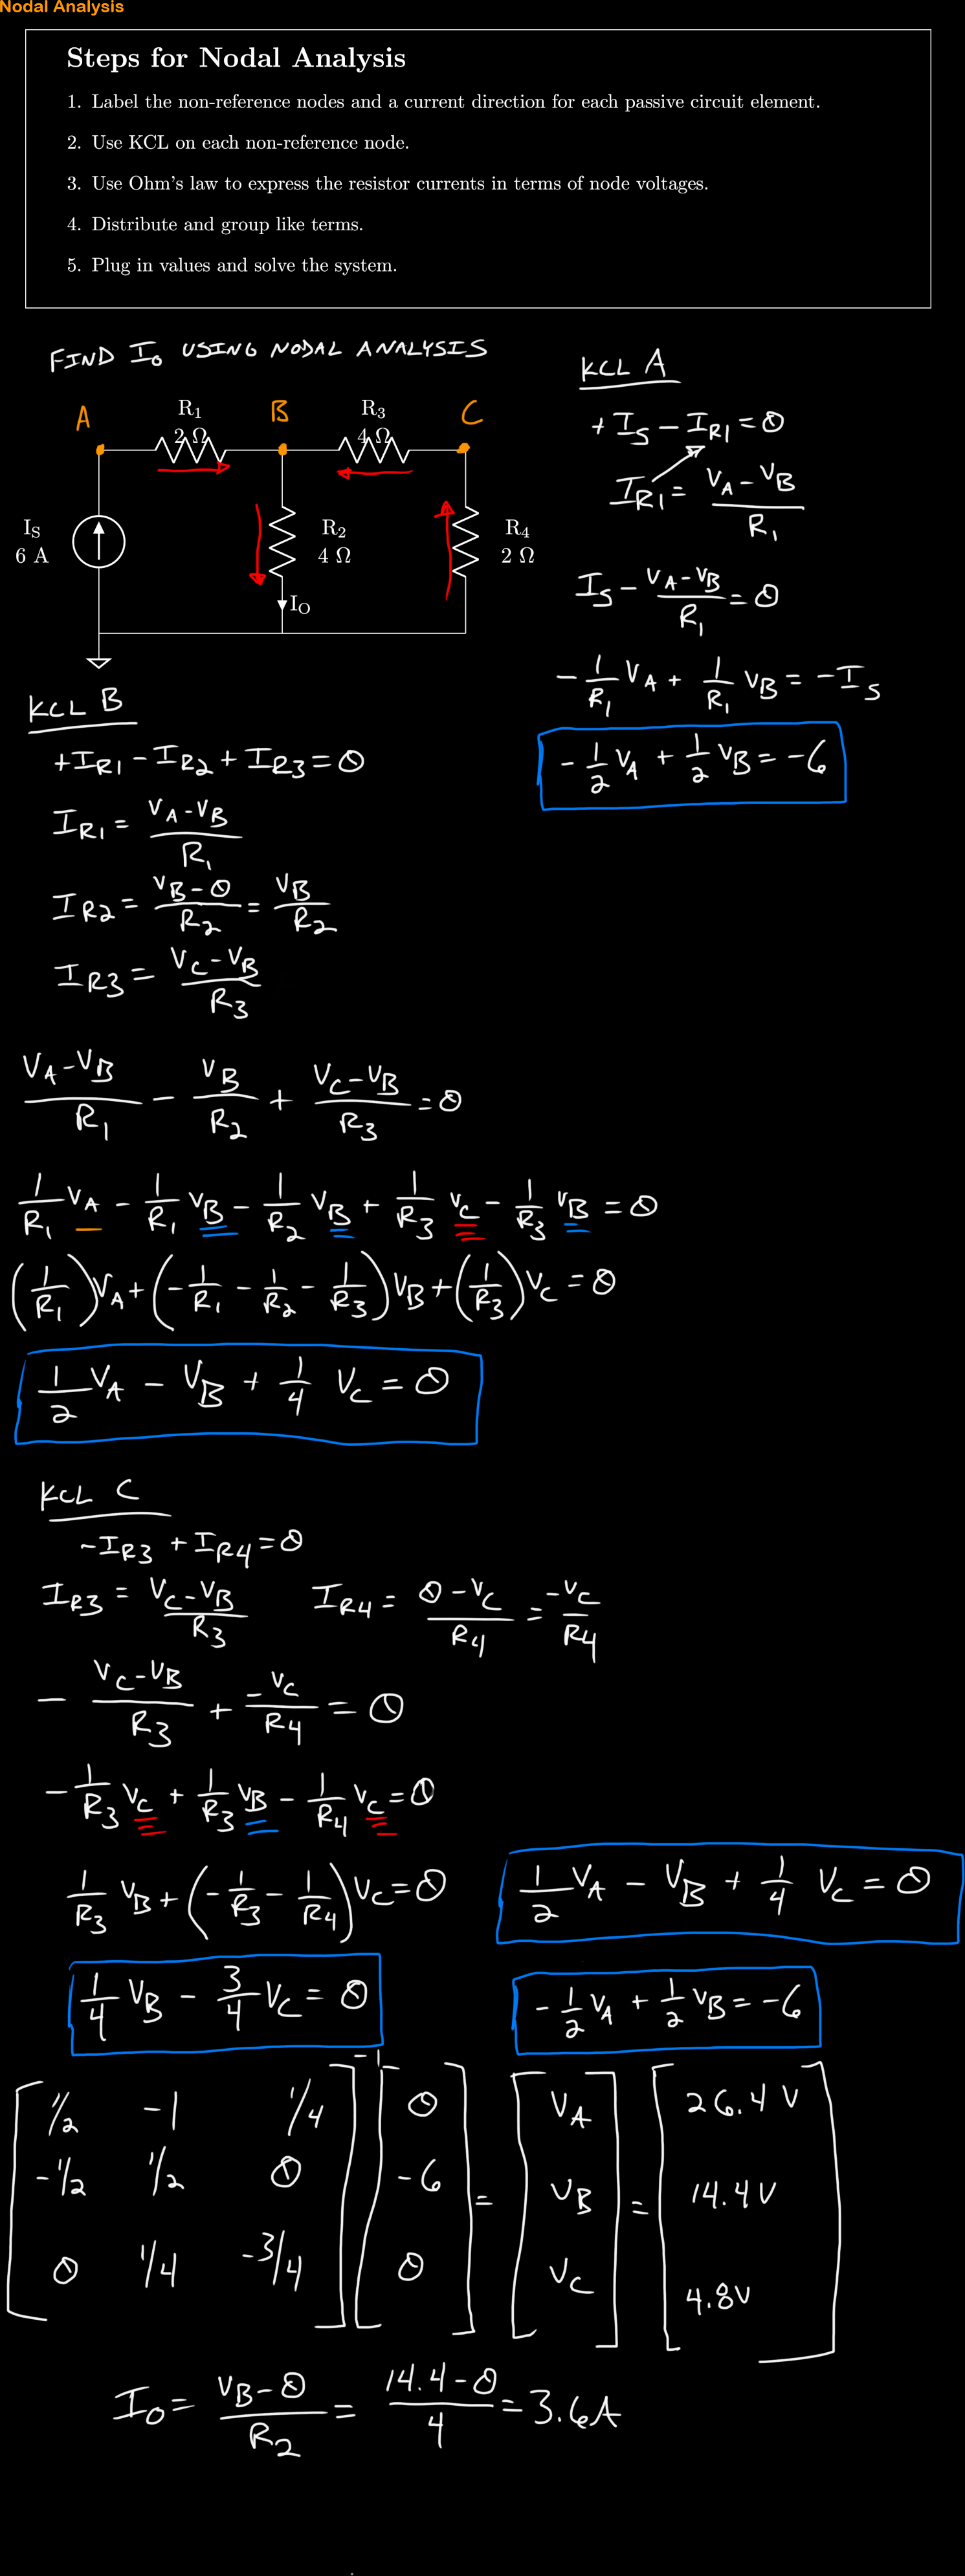 Nodal Analysis
Steps for Nodal Analysis
1. Label the non-reference nodes and a current direction for each passive circuit element.
2. Use KCL on each non-reference node.
3. Use Ohm's law to express the resistor currents in terms of node voltages.
4. Distribute and group like terms.
5. Plug in values and solve the system.
FIND I₀ USING NODAL ANALYSIS
A
R₁
2 Ω
B
R₃
4 Ω
C
I_S
6 A
R₂
4 Ω
I_O
R₄
2 Ω
KCL A
+I_S - I_R1 = 0
I_R1 = (V_A - V_B)/R₁
I_S - (V_A - V_B)/R₁ = 0
-1/R₁ V_A + 1/R₁ V_B = -I_S
-1/2 V_A + 1/2 V_B = -6
KCL B
+I_R1 - I_R2 + I_R3 = 0
I_R1 = (V_A - V_B)/R₁
I_R2 = (V_B - 0)/R₂ = V_B/R₂
I_R3 = (V_C - V_B)/R₃
(V_A - V_B)/R₁ - V_B/R₂ + (V_C - V_B)/R₃ = 0
1/R₁ V_A - 1/R₁ V_B - 1/R₂ V_B + 1/R₃ V_C - 1/R₃ V_B = 0
(1/R₁)V_A + (-1/R₁ - 1/R₂ - 1/R₃)V_B + (1/R₃)V_C = 0
1/2 V_A - V_B + 1/4 V_C = 0
KCL C
-I_R3 + I_R4 = 0
I_R3 = (V_C - V_B)/R₃ I_R4 = (0 - V_C)/R₄ = -V_C/R₄
-(V_C - V_B)/R₃ + -V_C/R₄ = 0
-1/R₃ V_C + 1/R₃ V_B - 1/R₄ V_C = 0
1/R₃ V_B + (-1/R₃ - 1/R₄)V_C = 0
1/4 V_B - 3/4 V_C = 0
1/2 V_A - V_B + 1/4 V_C = 0
-1/2 V_A + 1/2 V_B = -6
[1/2 -1 1/4]⁻¹ [0] [V_A] [26.4 V]
[-1/2 1/2 0] [-6] = [V_B] = [14.4 V]
[0 1/4 -3/4] [0] [V_C] [4.8V]
I₀ = (V_B - 0)/R₂ = (14.4 - 0)/4 = 3.6A